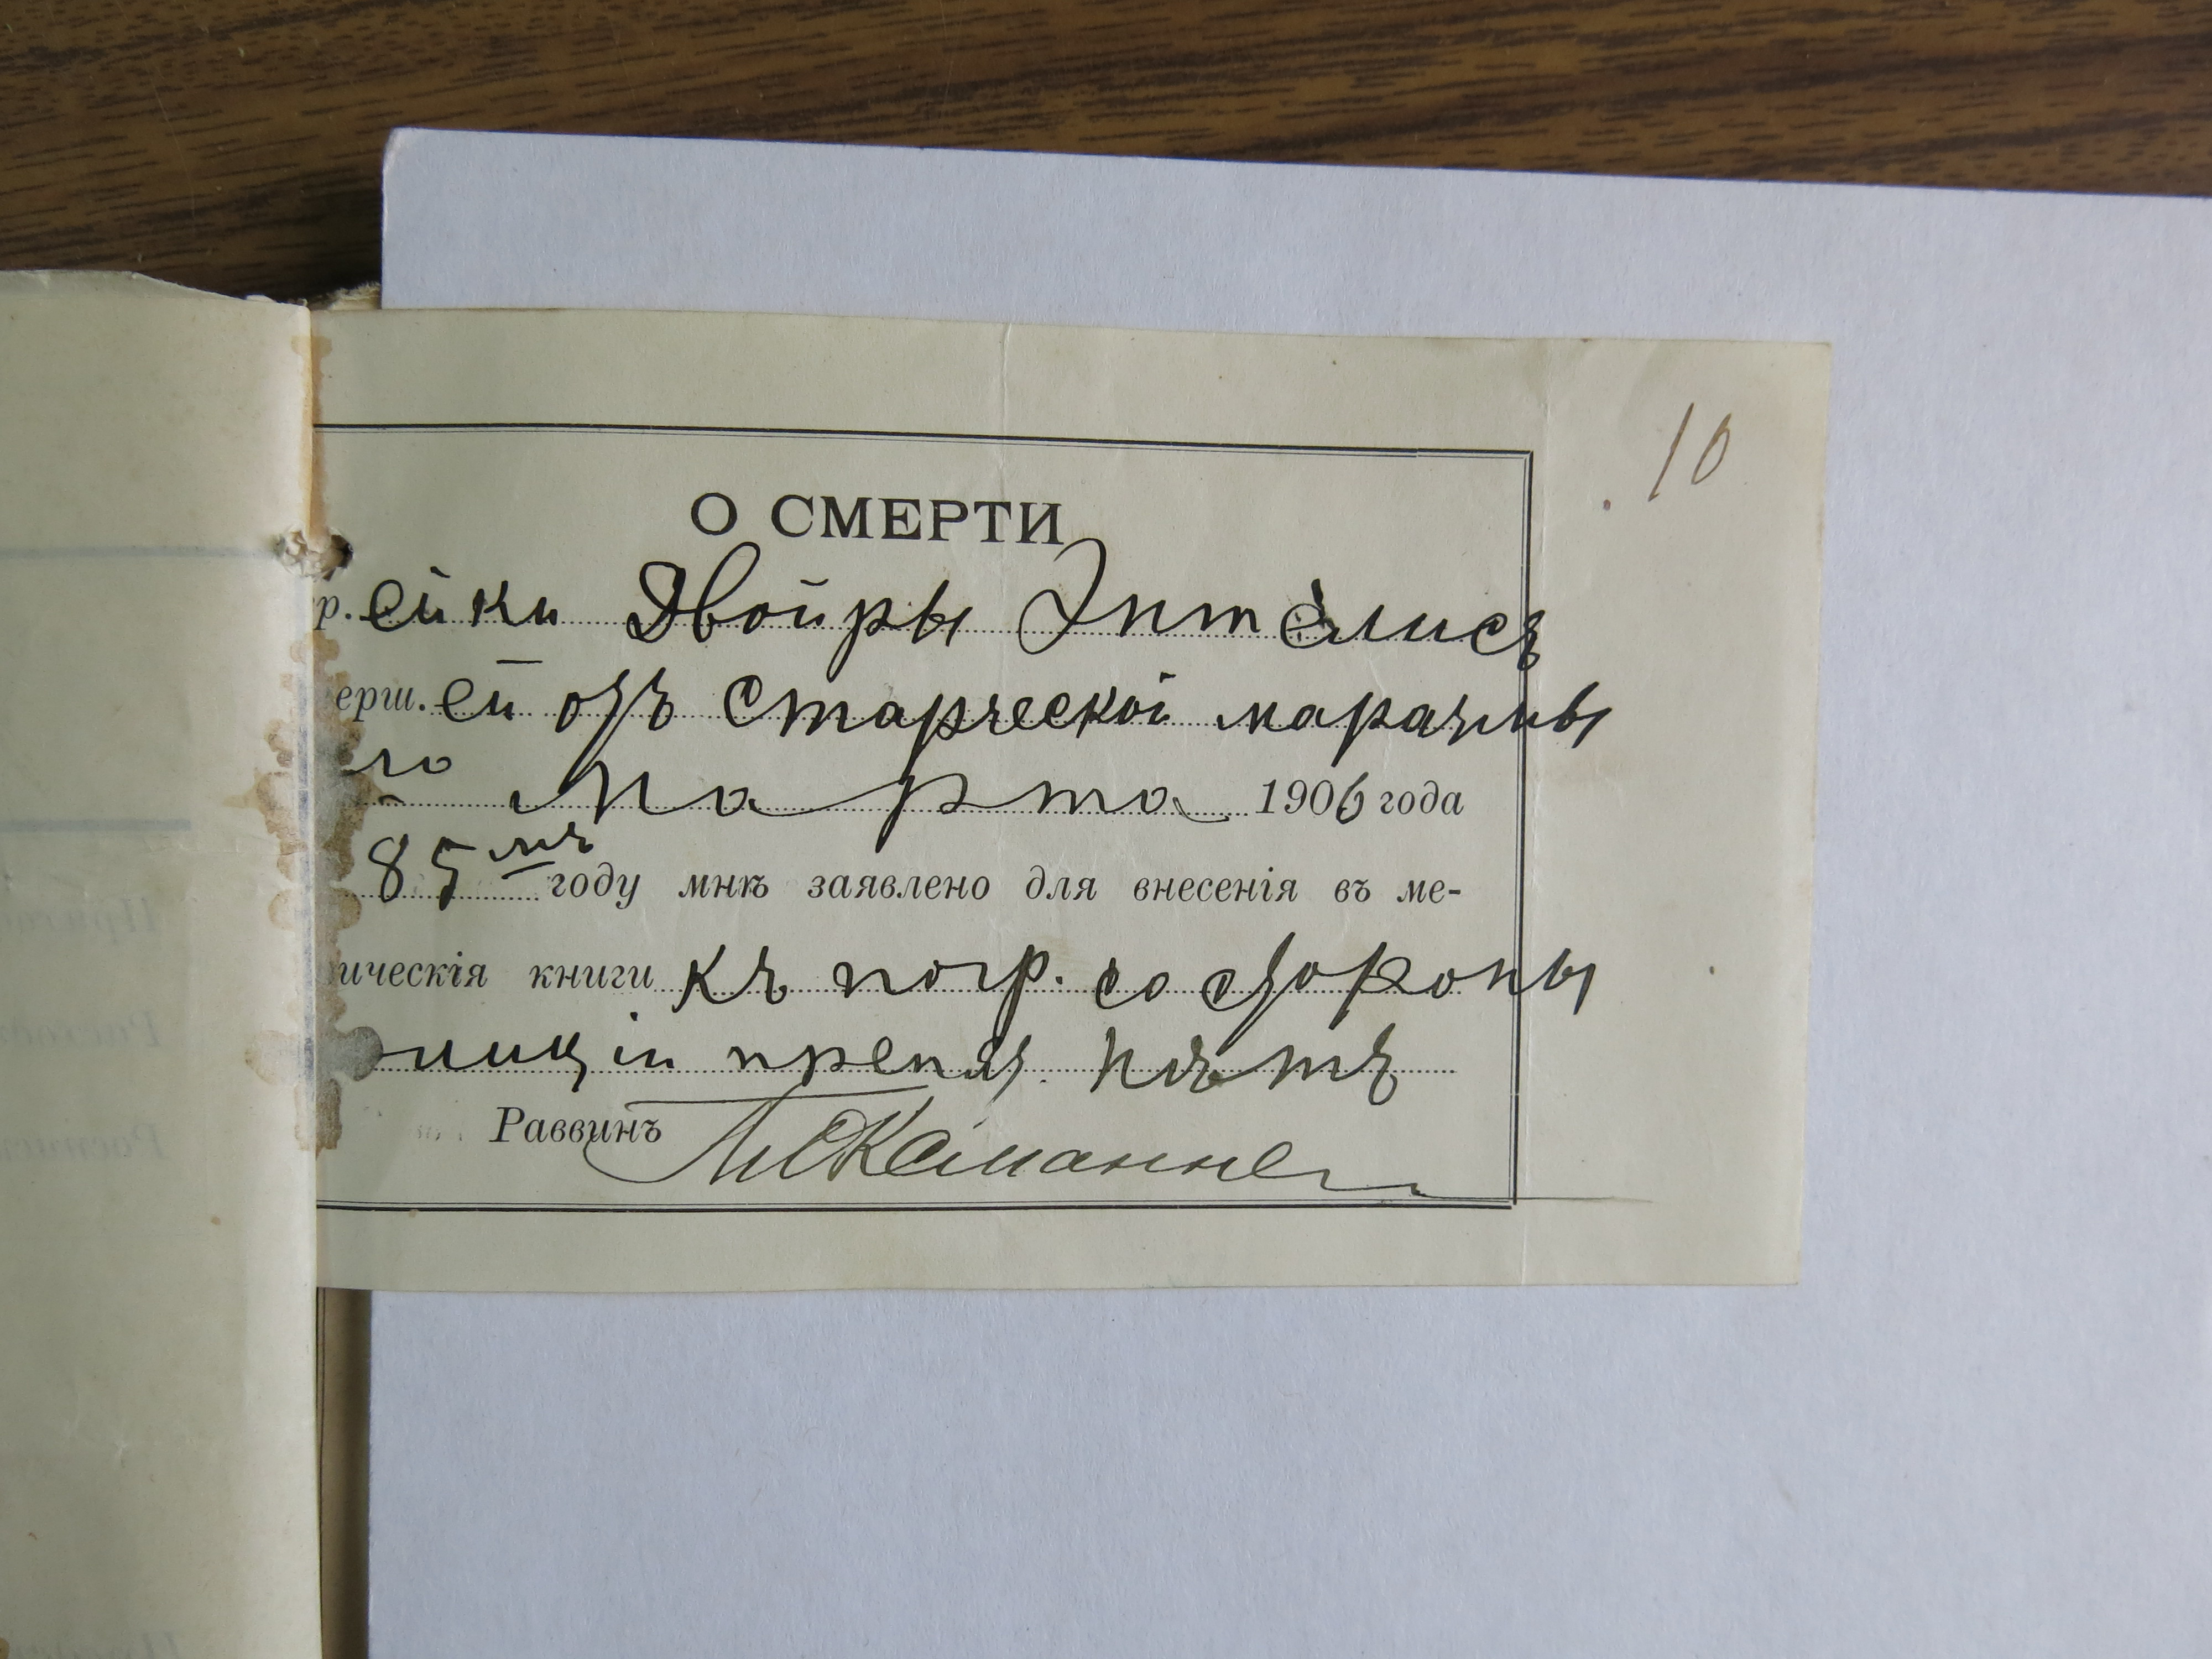 10
О СМЕРТИ
р. ейки Двойры Эптелисъ
ерш. ей отъ старческой маразмы
го Марта 1906 года
85 лѣ году мнѣ заявлено для внесенія въ ме-
ическія книги къ погр. со стороны
лиціи препят. нѣтъ
Раввинъ